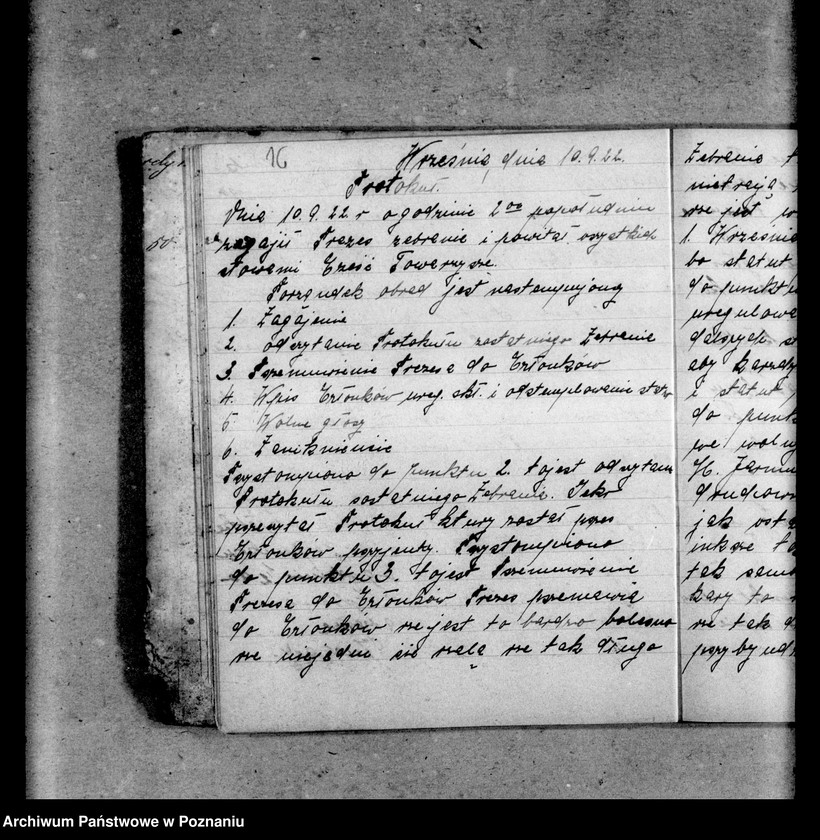 16
Września, dnia 10.9.22.
Protokuł.
Dnia 10.9.22 r ogodzinie 2oo popołudniu
zagajił Prezes zebranie i powitał wszystkich
słowami Cześć Towarzysze.
Porzondek obrad jest nastempujący
1. Zagajenie
2. odczytanie Protokułu zostatniego Zebranie
3. Przemuwienie Prezesa do Członków
4. Wpis Członków ureg. skł. i odstemplowanie
5. Wolne głosy
6. Zamkniencie
Przystompiono do punktu 2. tojest odczytanie
Protokułu zostatniego Zebranie. Sekr
przeczytał Protokuł ktury został przes
Członków przyjenty. Przystompiono
do punktu 3. tojest Przemuwienie
Prezesa do Członków Prezes przemawia
do Członków że jest to bardzo bolesno
że niejedni sie żalą że tak długo
Zebranie
nie
że jest w
1. Wrześnie
bo statut
do punktu
uregulowa
dalszych
aby
i statut
do punk
we wolny
H.
jak
inksze
tak samo
kary to
że tak
przybyud
Archiwum Państwowe w Poznaniu